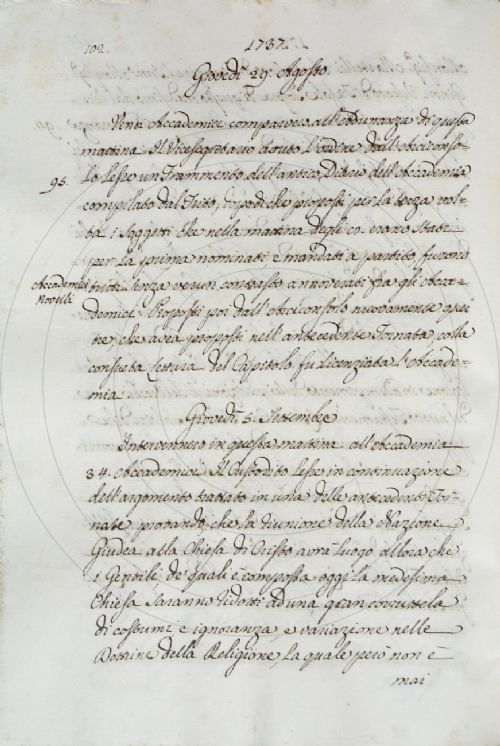 102. 1737.
Giovedì 29. Agosto.
Venti Accademici comparvero all'Adunanza di questa
mattina. Il Vicesegretario avuto l'ordine dall'Arciconso-
95.
lo lesse un Frammento dell'antico Diario dell'Accademia
compilato dal Trito, dopodiche proposti per la terza vol-
ta i Soggetti che nella mattina degli 8. erano stati
per la prima nominati e mandati a partito, furono
Accademici
Novelli
tutti senza verun contrasto annoverati fra gli Acca-
demici. Proposti poi dall'Arciconsolo nuovamente quei
tre, che avea proposti nell'antecedente Tornata, colla
consueta lettura del Capitolo fu licenziata l'Accade-
mia.
Giovedì 5. Settembre
Intervennero in questa mattina all'Accademia
34. Accademici. Il Custodito lesse in continuazione
dell'argomento trattato in una delle antecedenti Tor-
nate provando, che la riunione della Nazione
Giudea alla Chiesa di Cristo avrà luogo allora che
i Gentili de' quali è composta oggi la medesima
Chiesa saranno ridotti ad una gran corruttela
di costumi e ignoranza e variazione nelle
Dottrine della Religione, la quale però non è
mai